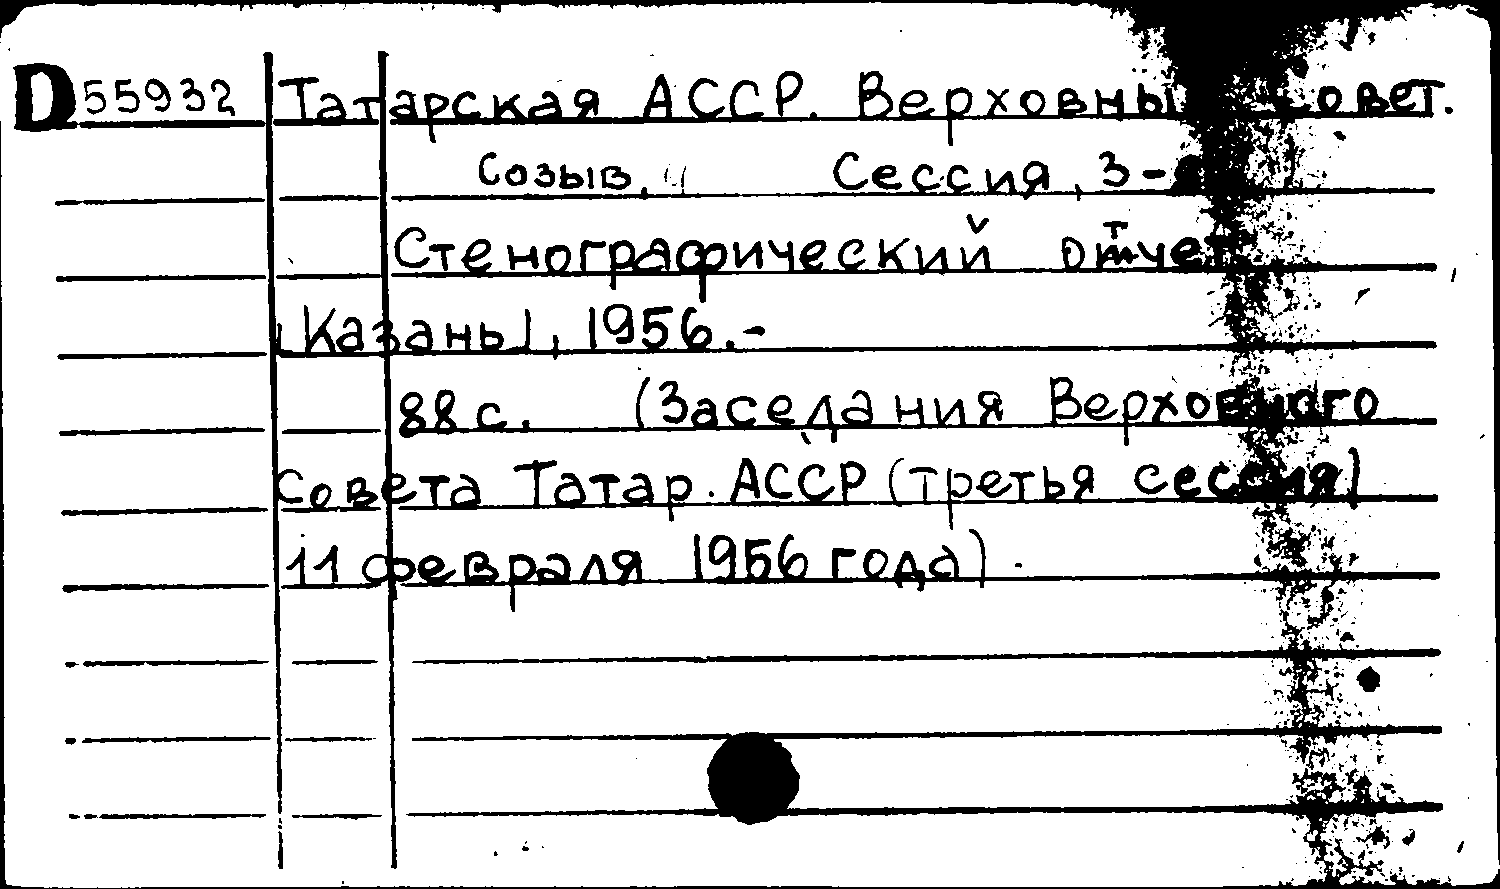 D55932 Татарская АССР. Верховный Совет.
Созыв, Сессия, 3-я
Стенографический отчет
[Казань], 1956.-
88 с. (Заседания Верховного
Совета Татар. АССР (третья сессия)
11 февраля 1956 года).